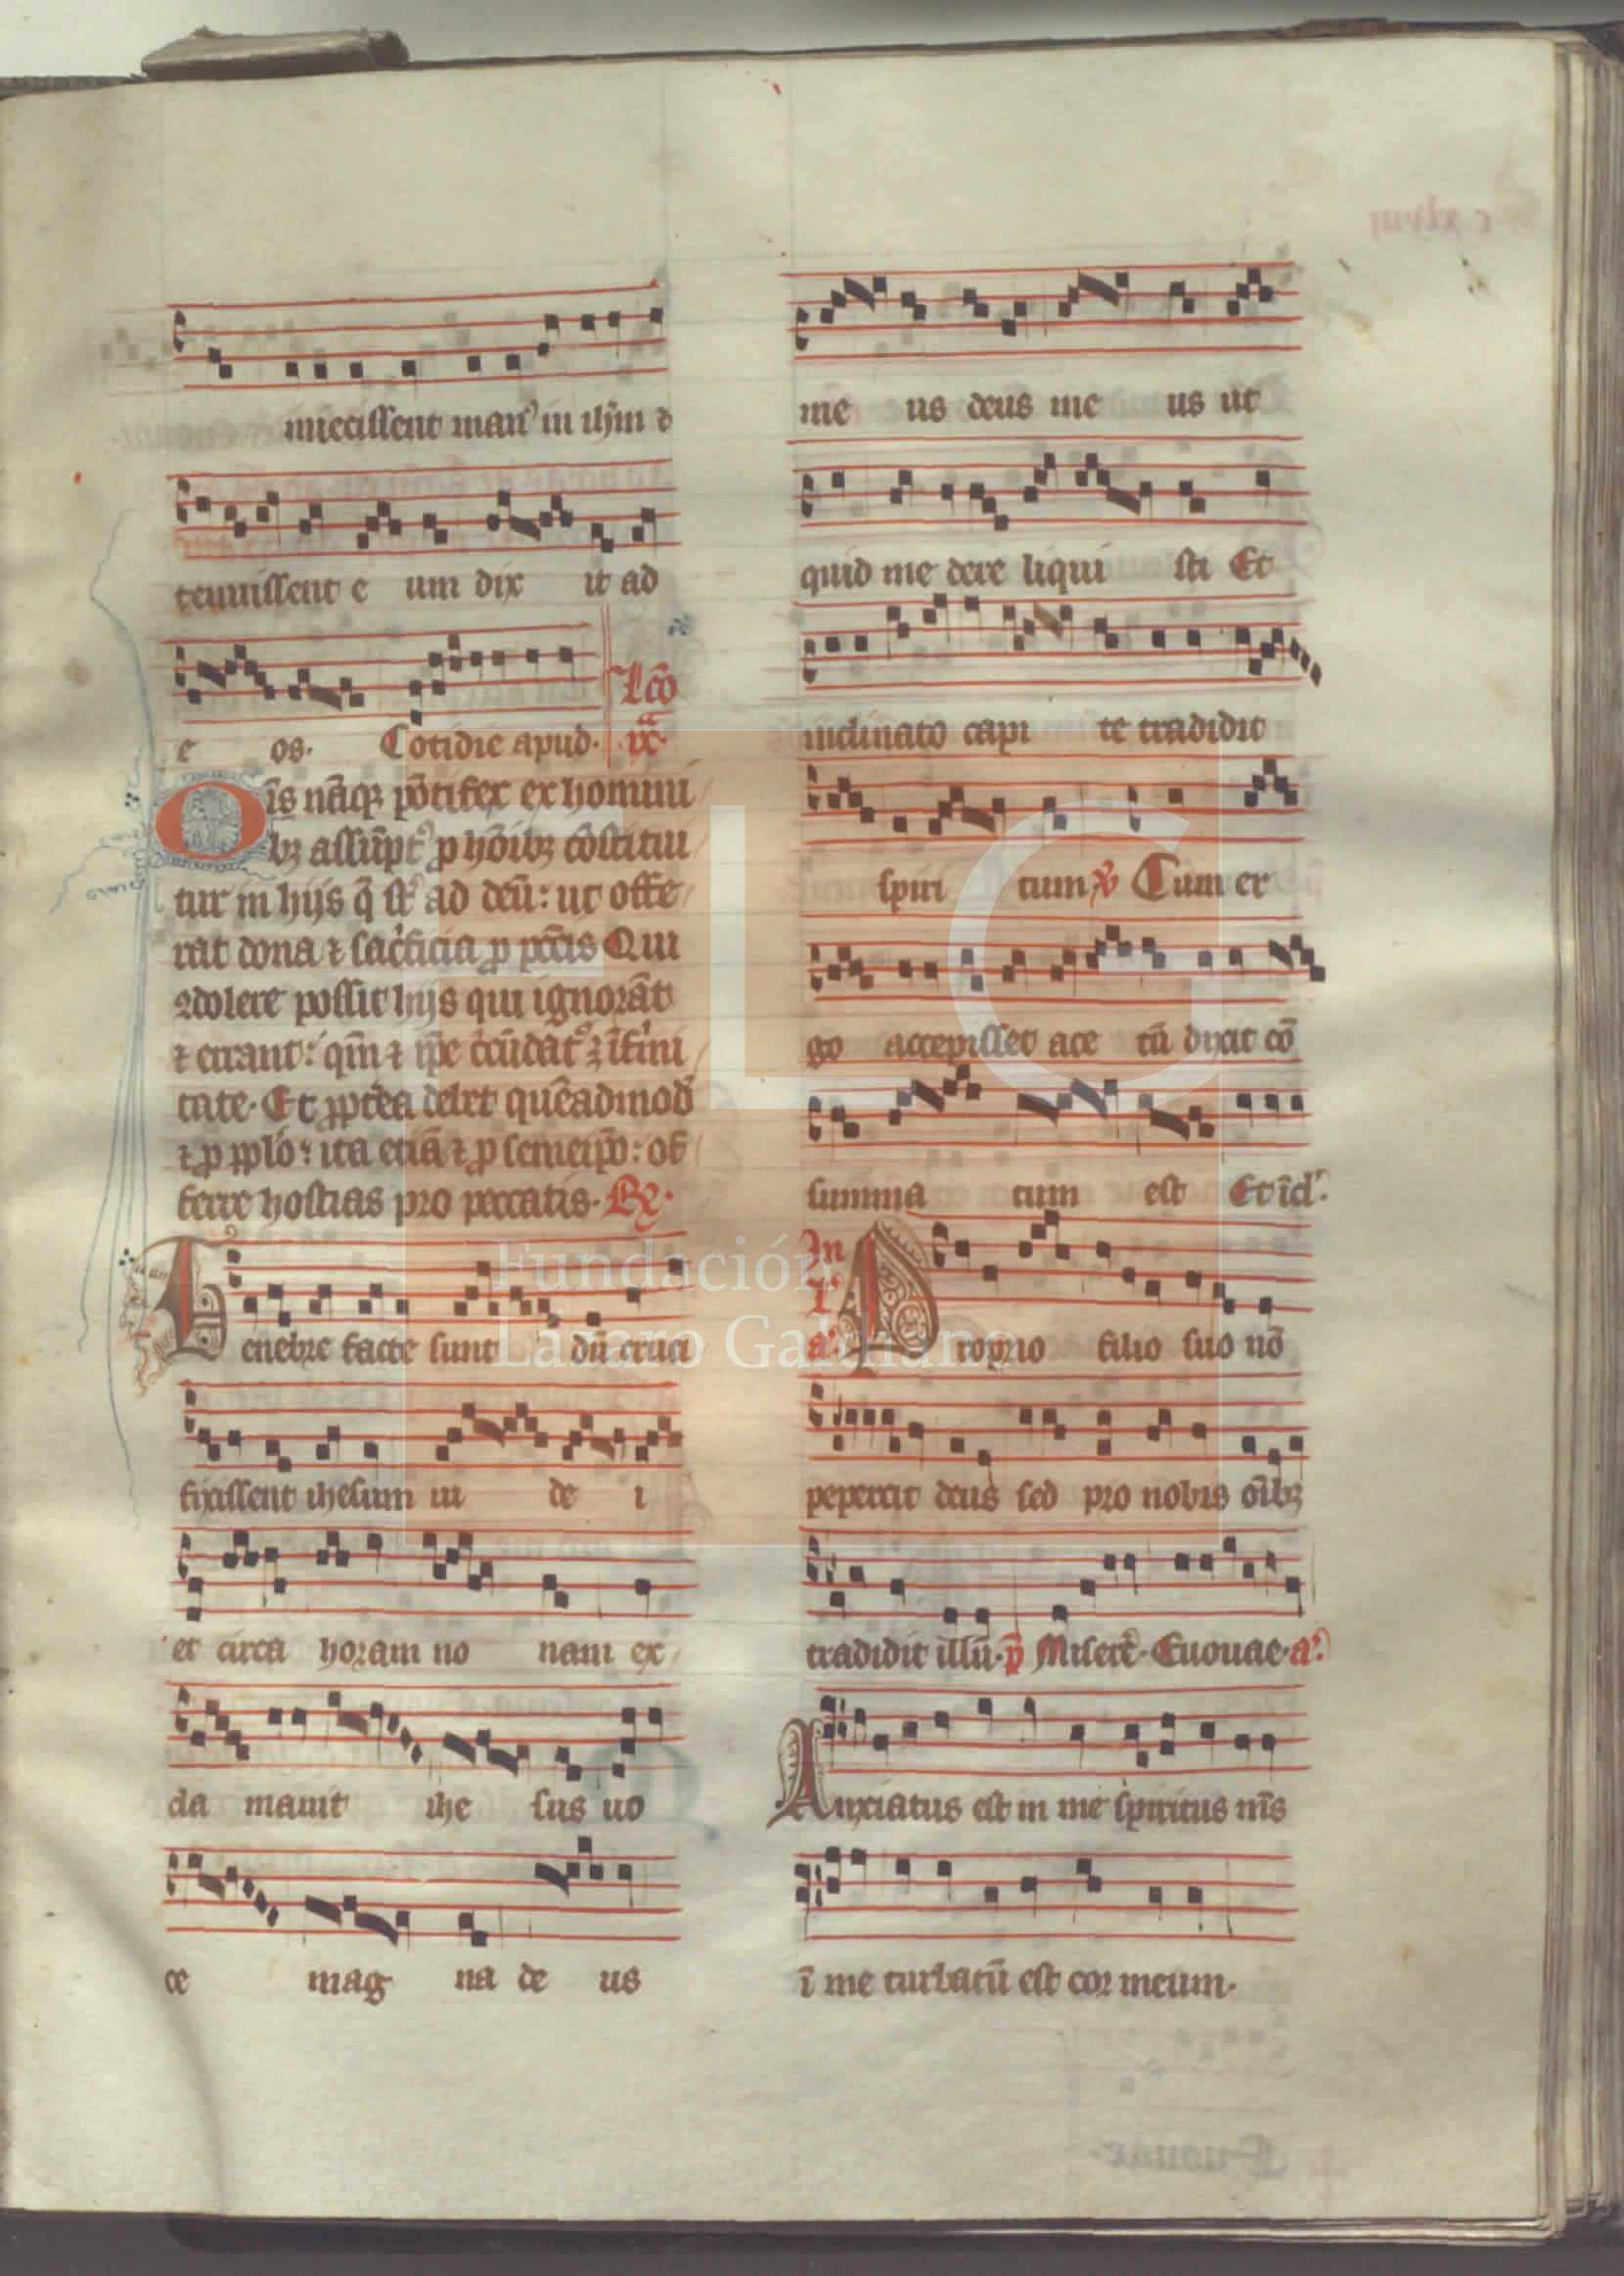 iniecissent man⁹ in ih̄m ⁊
tenuissent e um dix it ad
e os. Cotidie apud. Lc̄o
ix.ᵃ
Oīs nāqꝫ pōtifex ex homini
bꝫ assūpt⁹ ꝓ hōibꝫ cōstitui
tur in hijs q̄ st̄ ad deū: ut offe
rat dona ⁊ sac̍ficia ꝓ pcc̄is Qui
ꝯdolere possit hijs qui ignorāt
⁊ errant: qm̄ ⁊ ip̄e
tate. Et ꝓpt̄ea debet quēadmod̄
⁊ ꝓ pplo: ita etiā ⁊ ꝓ semeip̄o: of
ferre hostias pro peccatis. R̷.
Tenebre facte sunt dū cruci
fixissent ihesum iu de i
et circa horam no nam ex
cla mauit ihe sus uo
ce mag na de us
me us deus me us ut
quid me dere liqui sti Et
inclinato capi te tradidit
spiri tum ℣ Cum er
go accepisset ace tū dixit cō
summa tum est Et īcl̄.
In
l.
a. Proprio filio suo nō
pepercit deus sed pro nobis oībꝫ
tradidit illū. p̄ Miserē. Euouae. a.
Anxiatus est in me spiritus m̄s
ī me turbatū est cor meum.
FLG
Fundación
Lázaro Galdiano